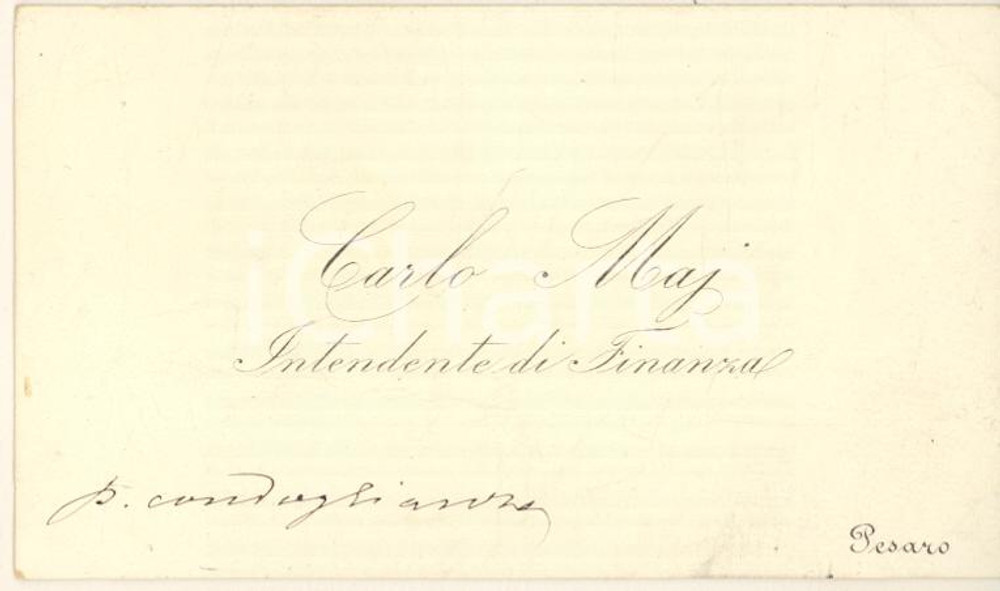 Carlo Maj
Intendente di Finanza
p. condoglianze
Pesaro
iCharta